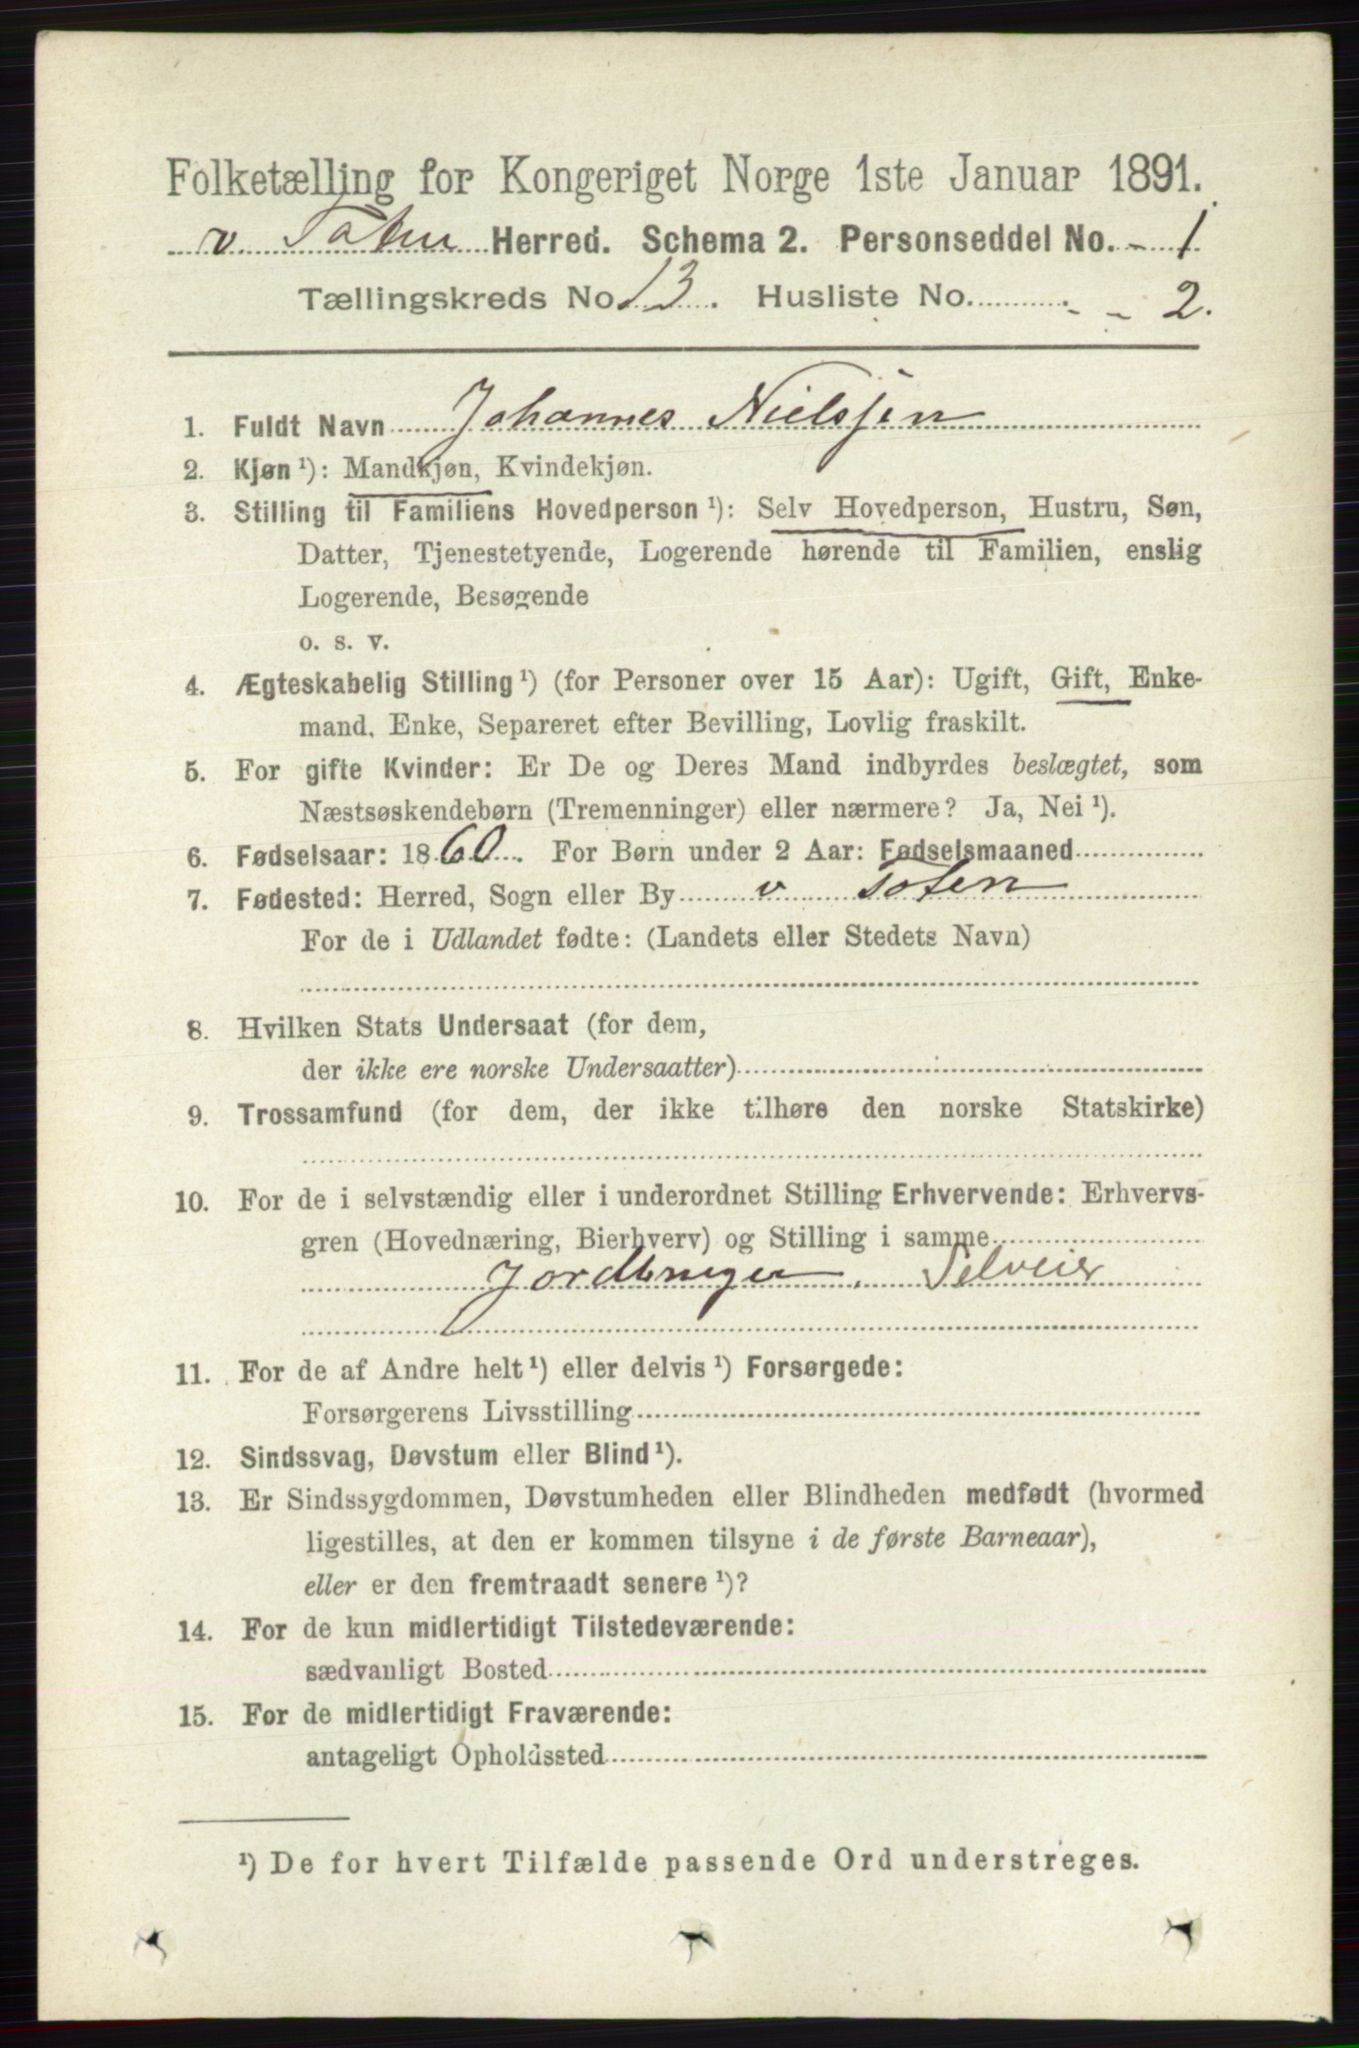 Folketælling for Kongeriget Norge 1ste Januar 1891.
v. Toten Herred. Schema 2. Personseddel No. - 1
Tællingskreds No 13. Husliste No. - - 2.
1. Fuldt Navn Johannes Nielsen
2. Kjøn ¹): Mandkjøn, Kvindekjøn.
3. Stilling til Familiens Hovedperson ¹): Selv Hovedperson, Hustru, Søn,
Datter, Tjenestetyende, Logerende hørende til Familien, enslig
Logerende, Besøgende
o. s. v.
4. Ægteskabelig Stilling ¹) (for Personer over 15 Aar): Ugift, Gift, Enke-
mand, Enke, Separeret efter Bevilling, Lovlig fraskilt.
5. For gifte Kvinder: Er De og Deres Mand indbyrdes beslægtet, som
Næstsøskendebørn (Tremenninger) eller nærmere? Ja, Nei ¹).
6. Fødselsaar: 1860. For Børn under 2 Aar: Fødselsmaaned
7. Fødested: Herred, Sogn eller By v Toten
For de i Udlandet fødte: (Landets eller Stedets Navn)
8. Hvilken Stats Undersaat (for dem,
der ikke ere norske Undersaatter)
9. Trossamfund (for dem, der ikke tilhøre den norske Statskirke)
10. For de i selvstændig eller i underordnet Stilling Erhvervende: Erhvervs-
gren (Hovednæring, Bierhverv) og Stilling i samme
Jordbruger, Selveier
11. For de af Andre helt ¹) eller delvis ¹) Forsørgede:
Forsørgerens Livsstilling
12. Sindssvag, Døvstum eller Blind ¹).
13. Er Sindssygdommen, Døvstumheden eller Blindheden medfødt (hvormed
ligestilles, at den er kommen tilsyne i de første Barneaar),
eller er den fremtraadt senere ¹)?
14. For de kun midlertidigt Tilstedeværende:
sædvanligt Bosted
15. For de midlertidigt Fraværende:
antageligt Opholdssted
¹) De for hvert Tilfælde passende Ord understreges.